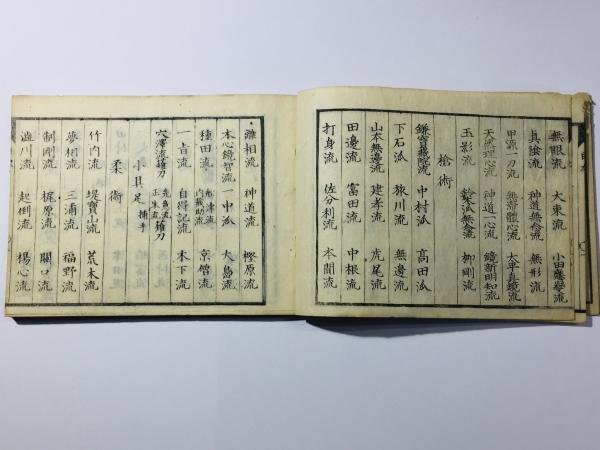 無眼流 大東流 小田應變流
真陰流 神道無念流 無形流
甲源一刀流 無滞體心流 太平真鏡流
天然理心流 神道一心流 鏡新明知流
玉影流 鈴木派無念流 柳剛流
槍術
鎌寶蔵院流 中村派 高田派
下石派 旅川流 無邊流
山本無邊流 建孝流 虎尾流
田邊流 富田流 中根流
打身流 佐分利流 本間流
離相流 神道流 樫原流
本心鏡智流 一中派 大島流
種田流 内蔵助流 京僧流
一旨流 自得記流 木下流
穴澤流薙刀 先意流 正木流 薙刀
小具足 捕手
柔術
竹内流 堤寶山流 荒木流
夢相流 三浦流 福野流
制剛流 梶原流 關口流
澁川流 起倒流 楊心流